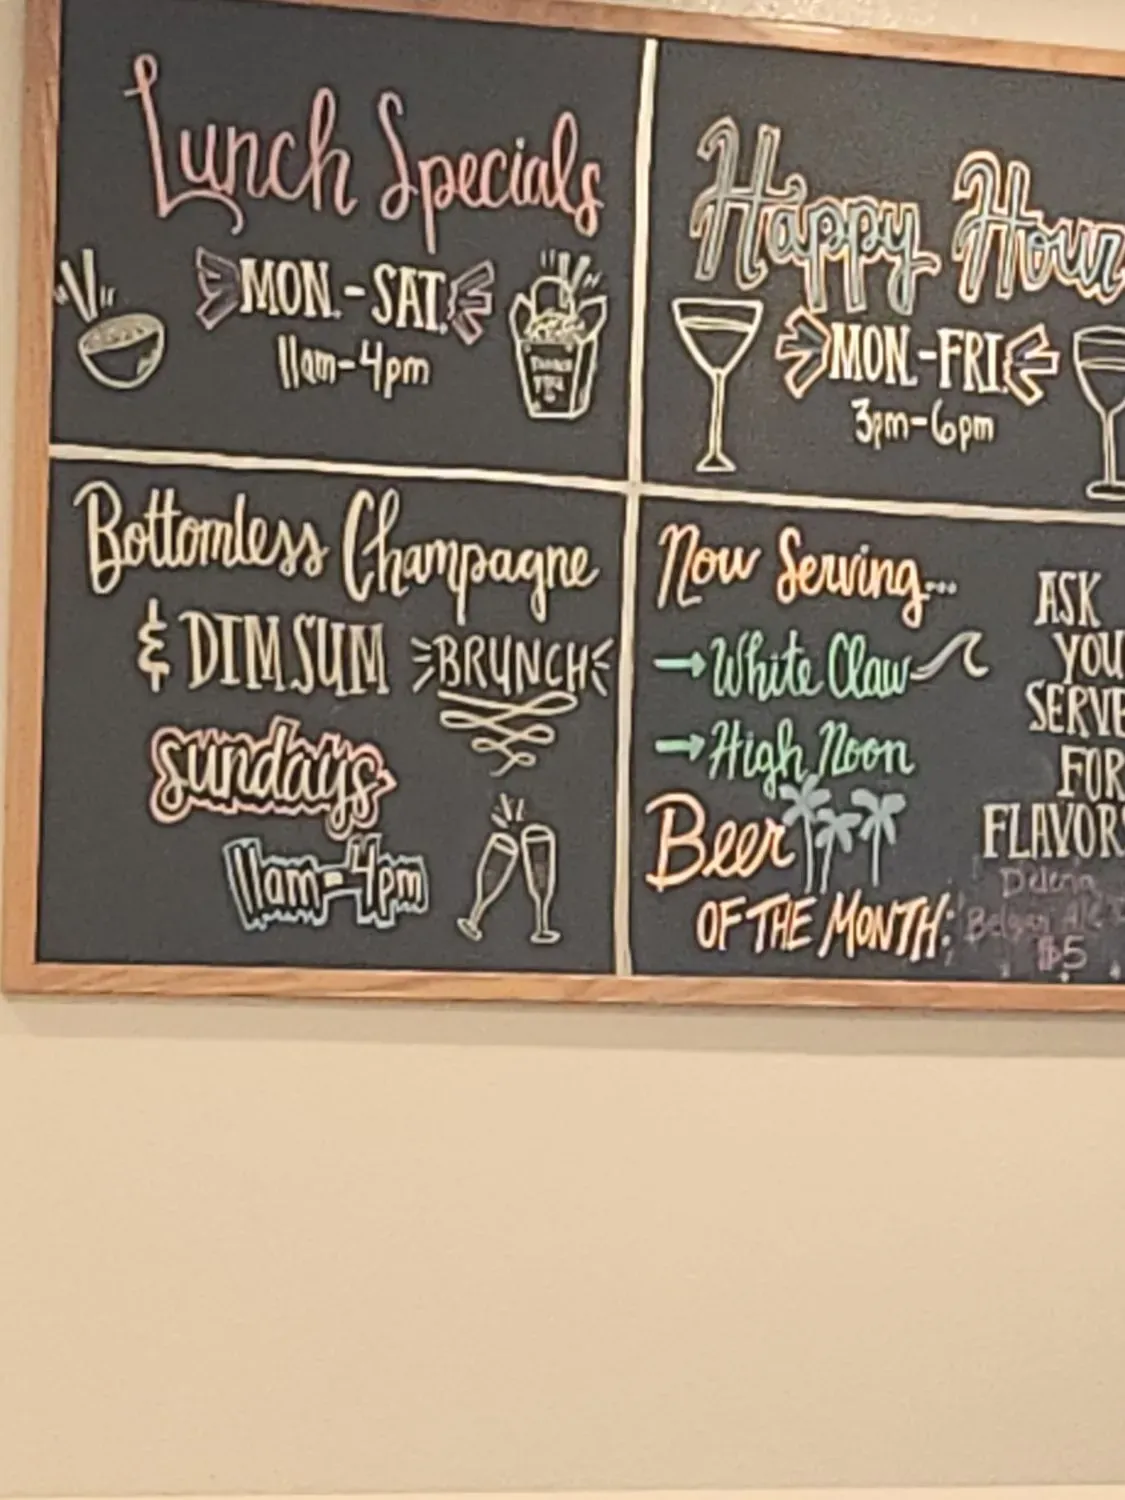 Lunch Specials
MON.-SAT.
11am-4pm
THANK
YOU
Happy Hour
MON.-FRI.
3pm-6pm
Bottomless Champagne
& DIM SUM BRUNCH
sundays
11am-4pm
Now Serving...
White Claw
High Noon
ASK
YOU
SERVE
FOR
FLAVOR
Beer
OF THE MONTH:
Ale
$5